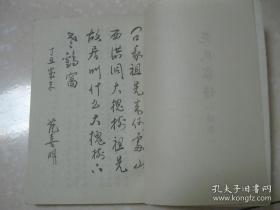 问家祖先来何处山
西洪洞大槐树祖先
故居叫什么大槐树下
老鹳窝
丁丑岁末 范喜明
孔夫子旧书网